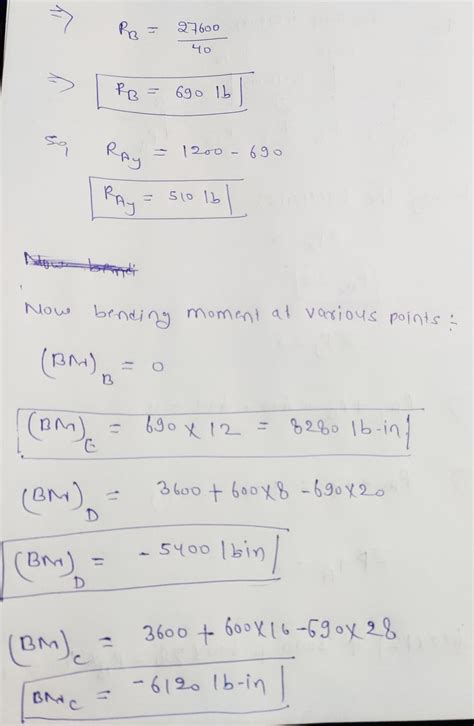 ⇒ R_B = 27600/40
⇒ R_B = 690 lb
So, R_Ay = 1200 - 690
R_Ay = 510 lb
Now bending moment at various points :-
(BM)_B = 0
(BM)_E = 690 × 12 = 8280 lb-in
(BM)_D = 3600 + 600×8 - 690×20
(BM)_D = - 5400 lbin
(BM)_C = 3600 + 600×16 - 690×28
BM_C = -6120 lb-in